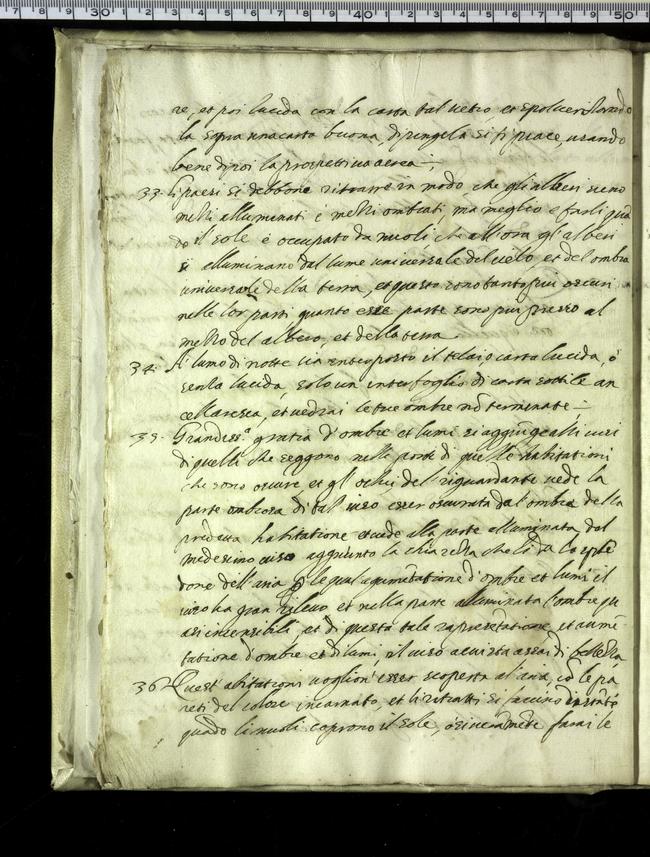 re, et poi lucida con la carta sul vetro et spolverizando
la sopra una carta buona, dipingela se ti piace, usando
bene di poi la prospettiva aerea
33. I paesi si debbone ritrarre in modo che gli alberi sieno
mezzi alluminati è mezzi ombrati, ma meglio e farli qua
do il sole è occupato da nuoli che all'ora gl'alberi
si alluminano dal lume universale del cielo, et del ombra
universale della terra, et questi sono tanto piu oscuri
nelle lor parti quanto esse parte sono piu presso al
mezzo del albero, et della terra
34. A lume di notte sia interposto il telaio carta lucida, ò
senza lucida, solo un interfoglio di carta sottile can
cellaresca, et vedrai le tue ombre nõ terminate
35. Grandiss.a gratia d'ombre et lumi si aggiũge alli visi
di quelli che seggono nelle porte di quelle habitationi
che sono oscure et gl'ochi del riguardante vede la
parte ombrosa di tal viso esser oscurata dal'ombra della
predetta habitatione et vede alla parte alluminata, del
medesimo viso aggiunto la chiarezza che li da lo sple
dore dell'aria le qual aumẽtatione d'ombre et lumi il
viso ha gran rilevo et nella parte alluminata l'ombre qu
asi insensibili, et di questa tale rapresẽtatione, et aumẽ
tatione d'ombre et di lumi, il viso acuista assai di bellezza
36 Quest'abitationi voglion'esser scoperta al'aria, cõ le pa
reti del colore incarnato, et li ritratti si faccino
quãdo li nuoli coprono il sole, ò si veramẽte farai le